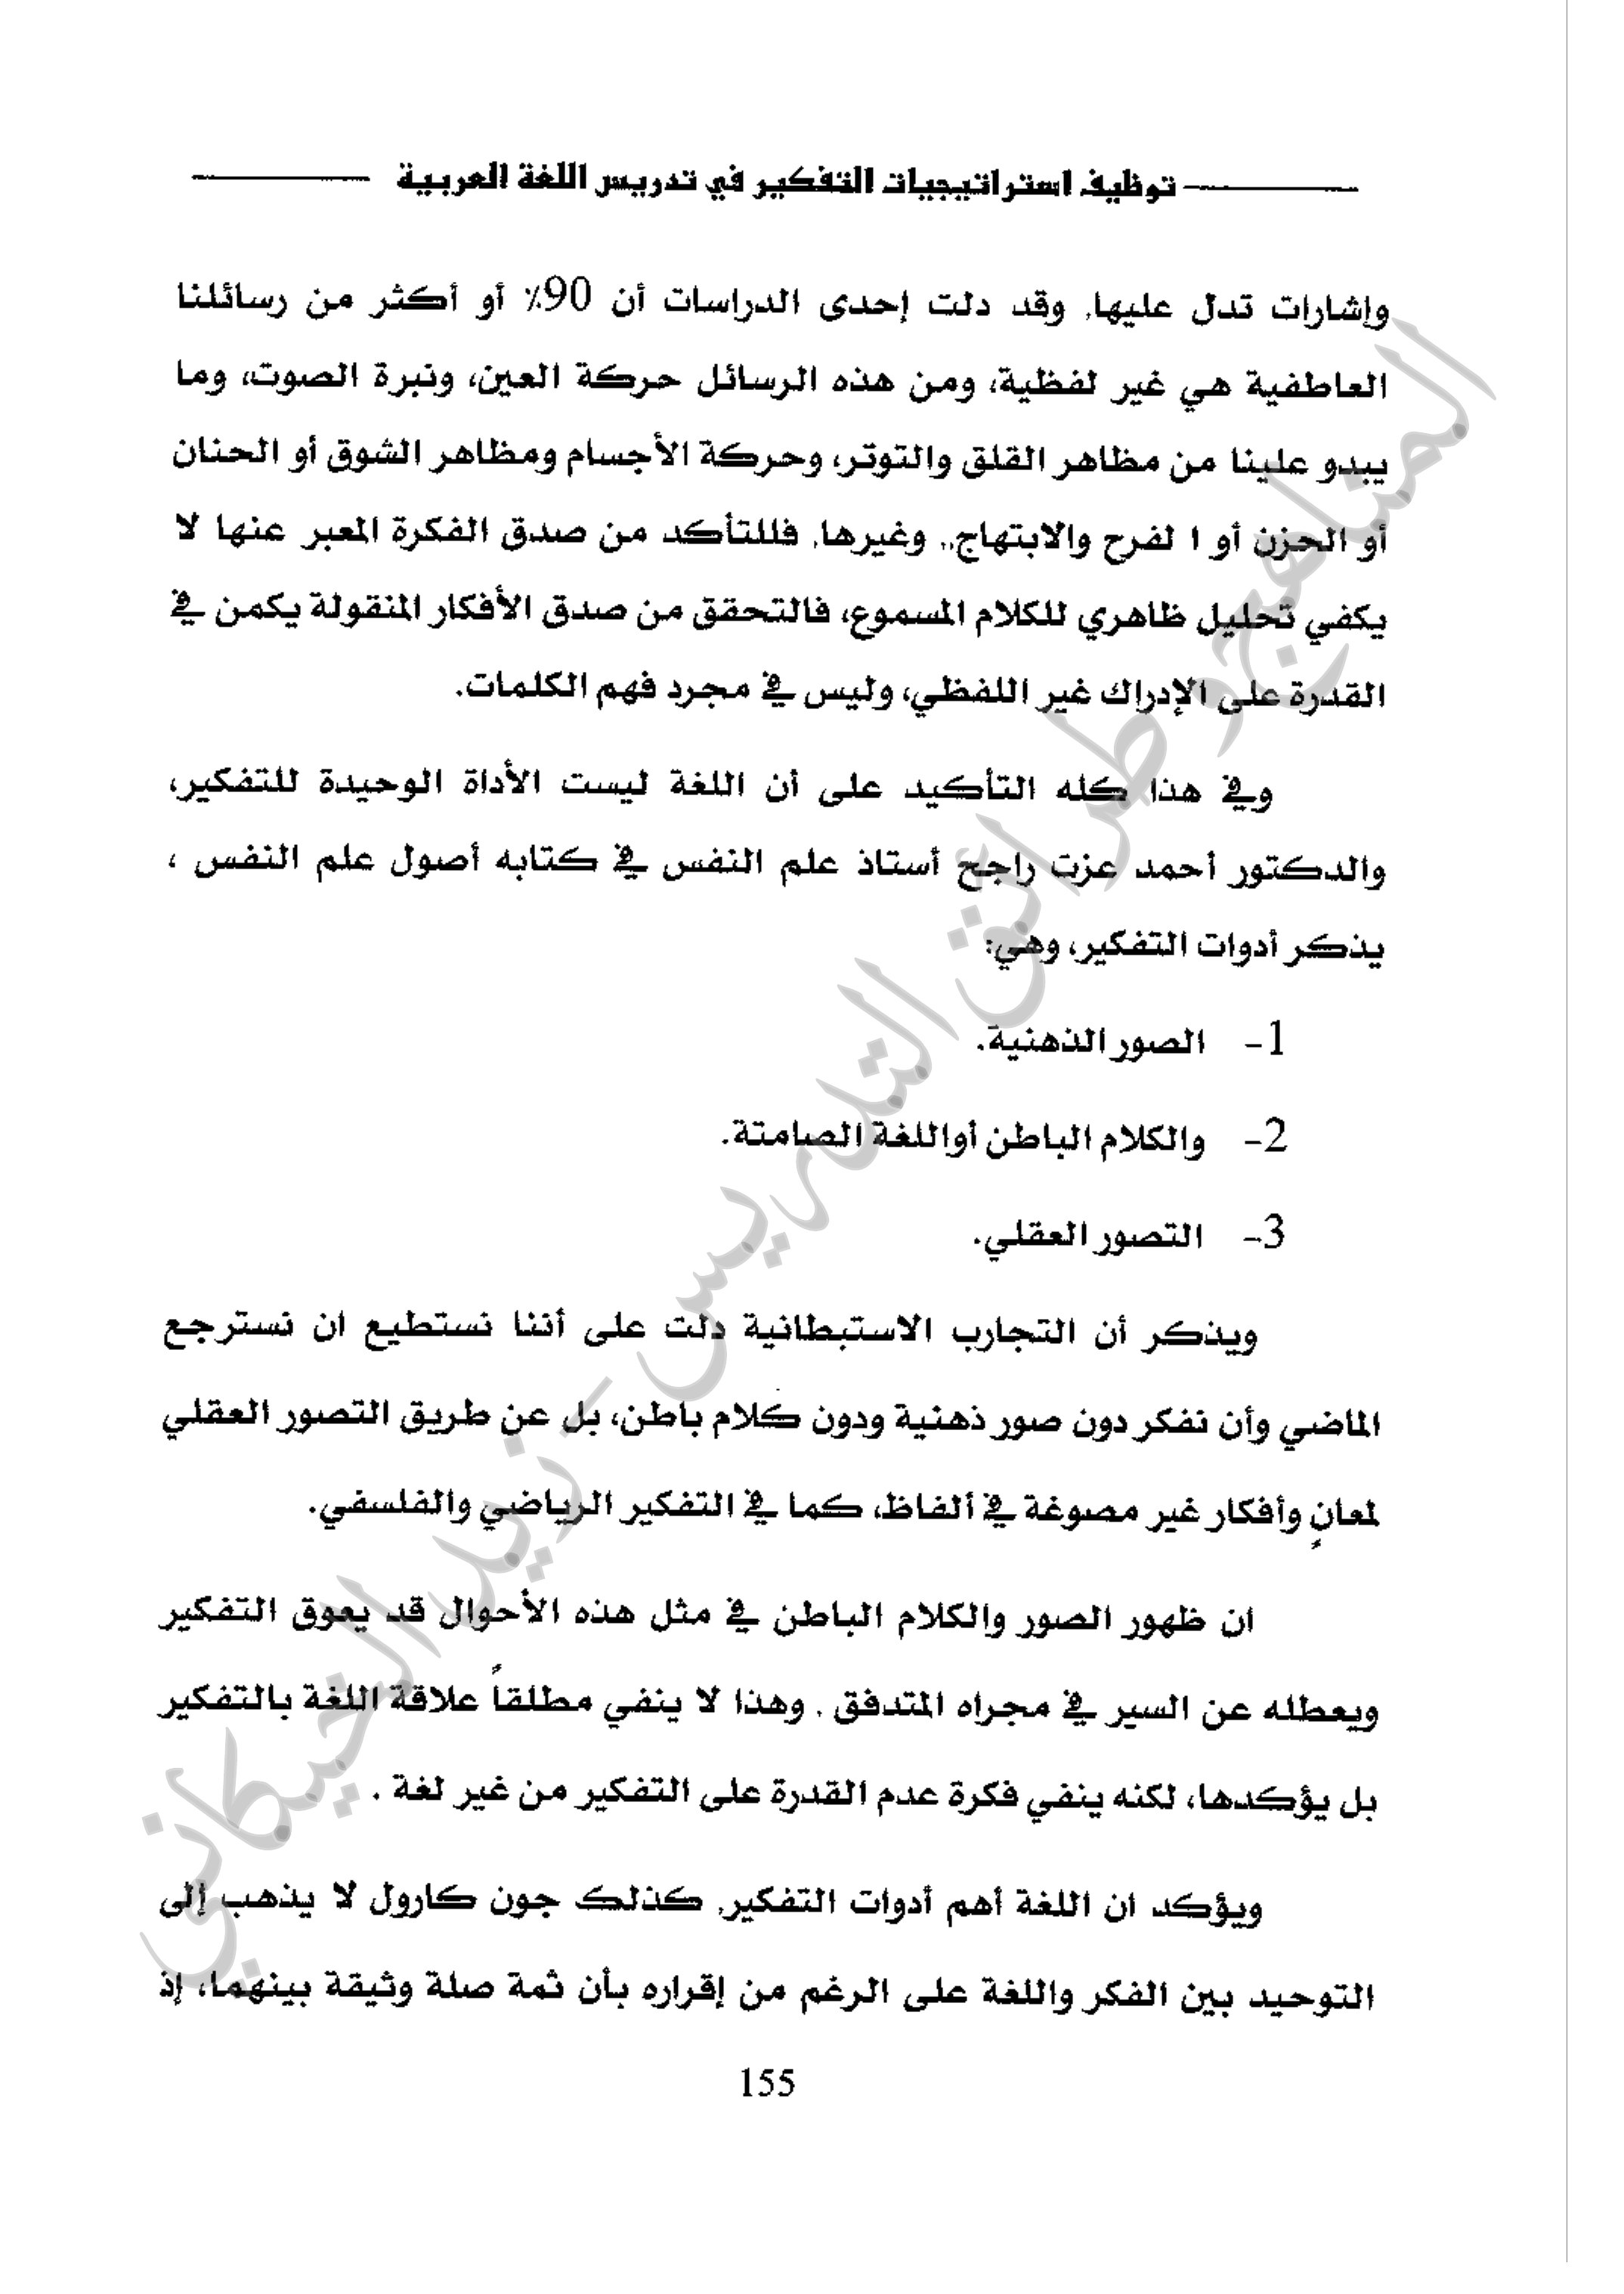 توظيف استراتيجيات التفكير في تدريس اللغة العربية
وإشارات تدل عليها. وقد دلت إحدى الدراسات أن 90٪ أو أكثر من رسائلنا
العاطفية هي غير لفظية، ومن هذه الرسائل حركة العين، ونبرة الصوت، وما
يبدو علينا من مظاهر القلق والتوتر، وحركة الأجسام ومظاهر الشوق أو الحنان
أو الحزن أو ا لفرح والابتهاج.. وغيرها. فللتأكد من صدق الفكرة المعبر عنها لا
يكفي تحليل ظاهري للكلام المسموع، فالتحقق من صدق الأفكار المنقولة يكمن في
القدرة على الإدراك غير اللفظي، وليس في مجرد فهم الكلمات.
وفي هذا كله التأكيد على أن اللغة ليست الأداة الوحيدة للتفكير،
والدكتور أحمد عزت راجح أستاذ علم النفس في كتابه أصول علم النفس ،
يذكر أدوات التفكير، وهي:
1- الصور الذهنية.
2- والكلام الباطن أواللغة الصامتة.
3- التصور العقلي.
ويذكر أن التجارب الاستبطانية دلت على أننا نستطيع ان نسترجع
الماضي وأن نفكر دون صور ذهنية ودون كلام باطن، بل عن طريق التصور العقلي
لمعانٍ وأفكار غير مصوغة في ألفاظ، كما في التفكير الرياضي والفلسفي.
ان ظهور الصور والكلام الباطن في مثل هذه الأحوال قد يعوق التفكير
ويعطله عن السير في مجراه المتدفق . وهذا لا ينفي مطلقاً علاقة اللغة بالتفكير
بل يؤكدها، لكنه ينفي فكرة عدم القدرة على التفكير من غير لغة .
ويؤكد ان اللغة أهم أدوات التفكير. كذلك جون كارول لا يذهب إلى
التوحيد بين الفكر واللغة على الرغم من إقراره بأن ثمة صلة وثيقة بينهما، إذ
155
المناهج وطرائق التدريس - زيد الخيكاني